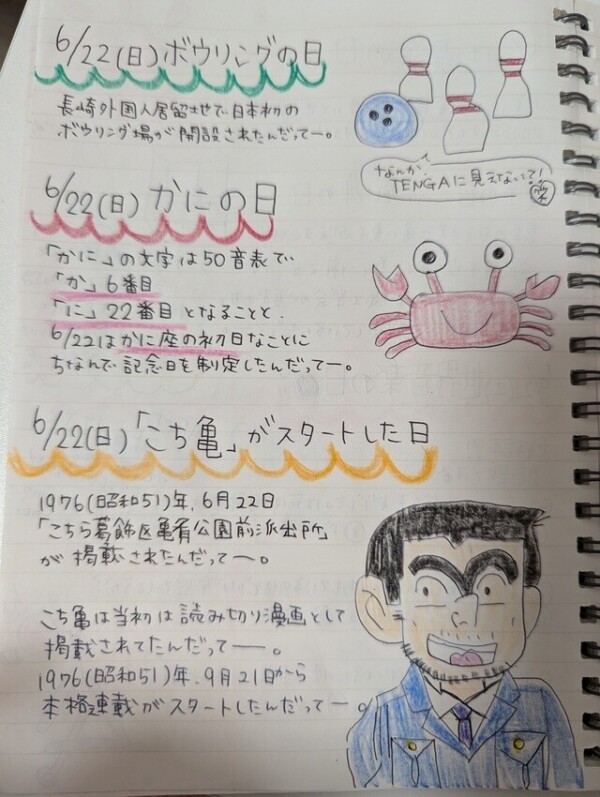 6/22(日)ボウリングの日
長崎外国人居留地で日本初の
ボウリング場が開設されたんだってー。
なんか、
TENGAに見えないって!
笑
6/22(日)かにの日
「かに」の文字は50音表で
「か」6番目
「に」22番目となることと、
6/22はかに座の初日なことに
ちなんで記念日を制定したんだってー。
6/22(日)「こち亀」がスタートした日
1976(昭和51)年、6月22日
「こちら葛飾区亀有公園前派出所」
が掲載されたんだってー。
こち亀は当初は読み切り漫画として
掲載されてたんだってー。
1976(昭和51)年、9月21日から
本格連載がスタートしたんだってー。